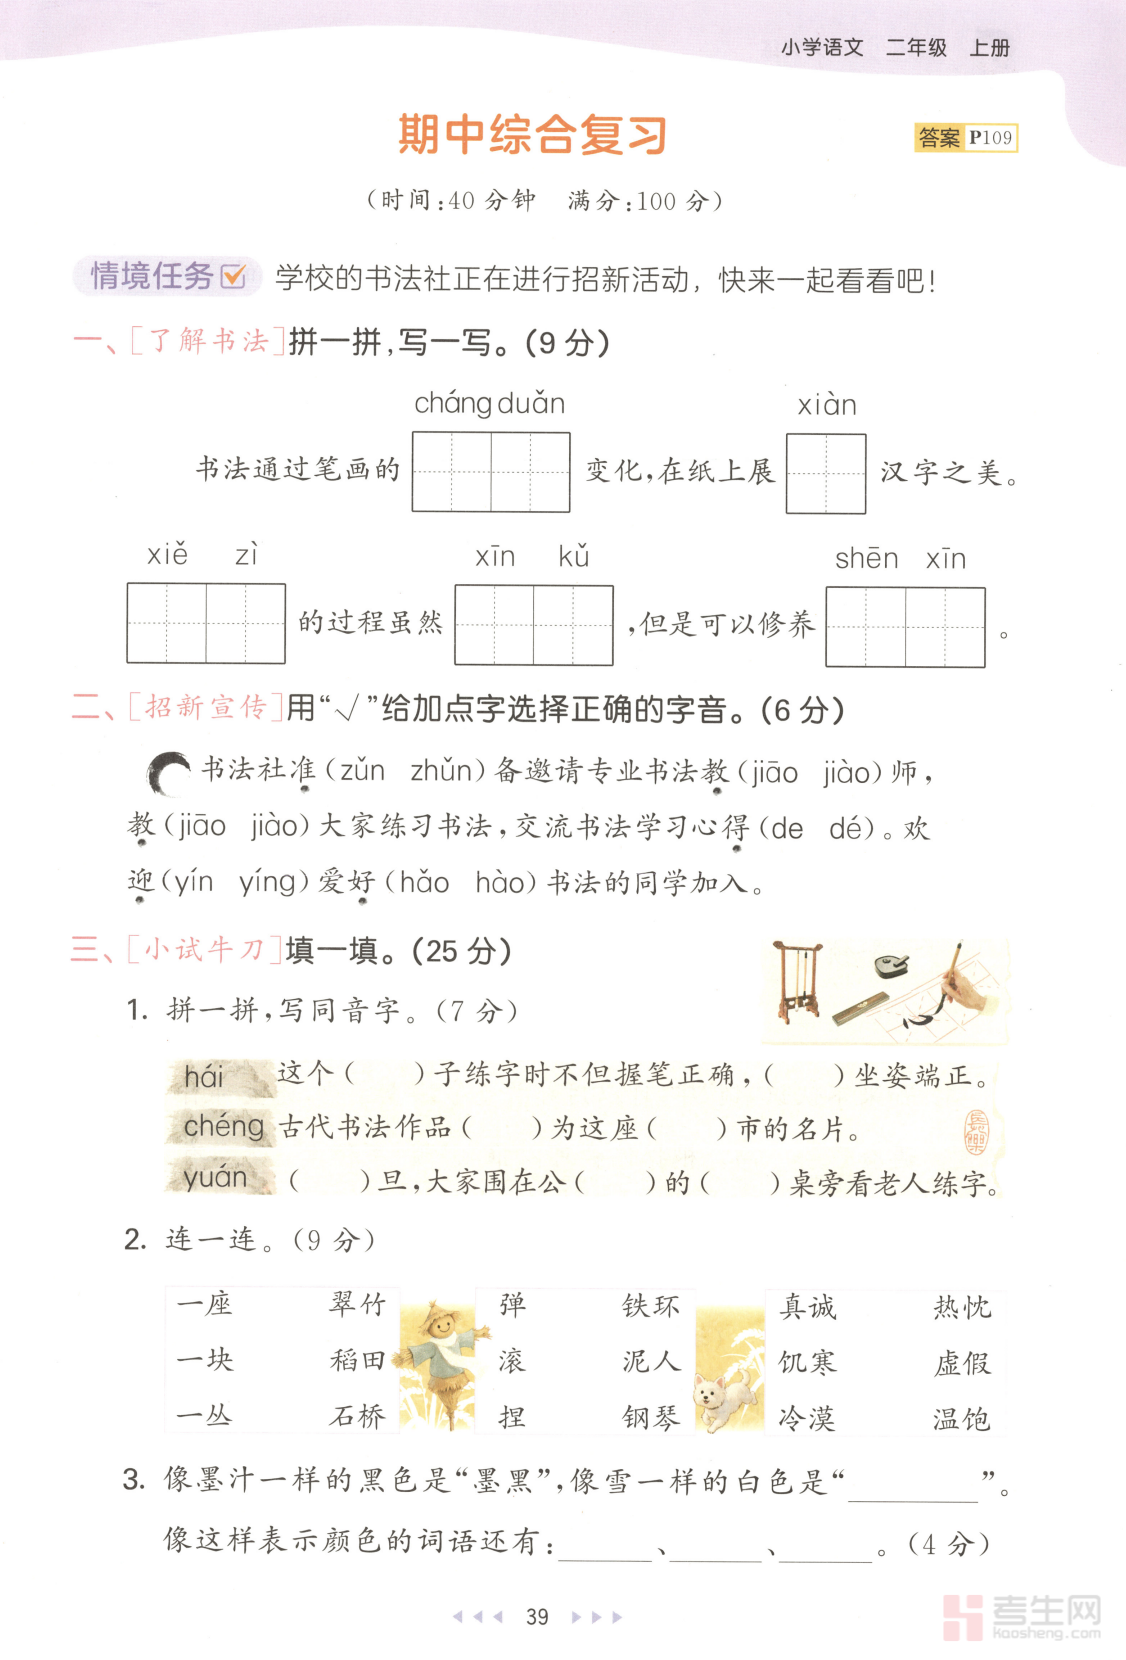 小学语文 二年级 上册
期中综合复习
答案 P109
（时间:40 分钟 满分:100 分）
情境任务 学校的书法社正在进行招新活动，快来一起看看吧！
一、[了解书法]拼一拼,写一写。（9 分）
cháng duǎn xiàn
书法通过笔画的 变化,在纸上展 汉字之美。
xiě zì xīn kǔ shēn xīn
的过程虽然 ,但是可以修养 。
二、[招新宣传]用“√”给加点字选择正确的字音。（6 分）
书法社准（zǔn zhǔn）备邀请专业书法教（jiāo jiào）师，
教（jiāo jiào）大家练习书法，交流书法学习心得（de dé）。欢
迎（yín yíng）爱好（hǎo hào）书法的同学加入。
三、[小试牛刀]填一填。（25 分）
1. 拼一拼,写同音字。（7 分）
hái 这个（ ）子练字时不但握笔正确，（ ）坐姿端正。
chéng 古代书法作品（ ）为这座（ ）市的名片。
yuán （ ）旦,大家围在公（ ）的（ ）桌旁看老人练字。
2. 连一连。（9 分）
一座 翠竹 弹 铁环 真诚 热忱
一块 稻田 滚 泥人 饥寒 虚假
一丛 石桥 捏 钢琴 冷漠 温饱
3. 像墨汁一样的黑色是“墨黑”,像雪一样的白色是“________”。
像这样表示颜色的词语还有：______、______、______。（4 分）
39
考生网
kaosheng.com